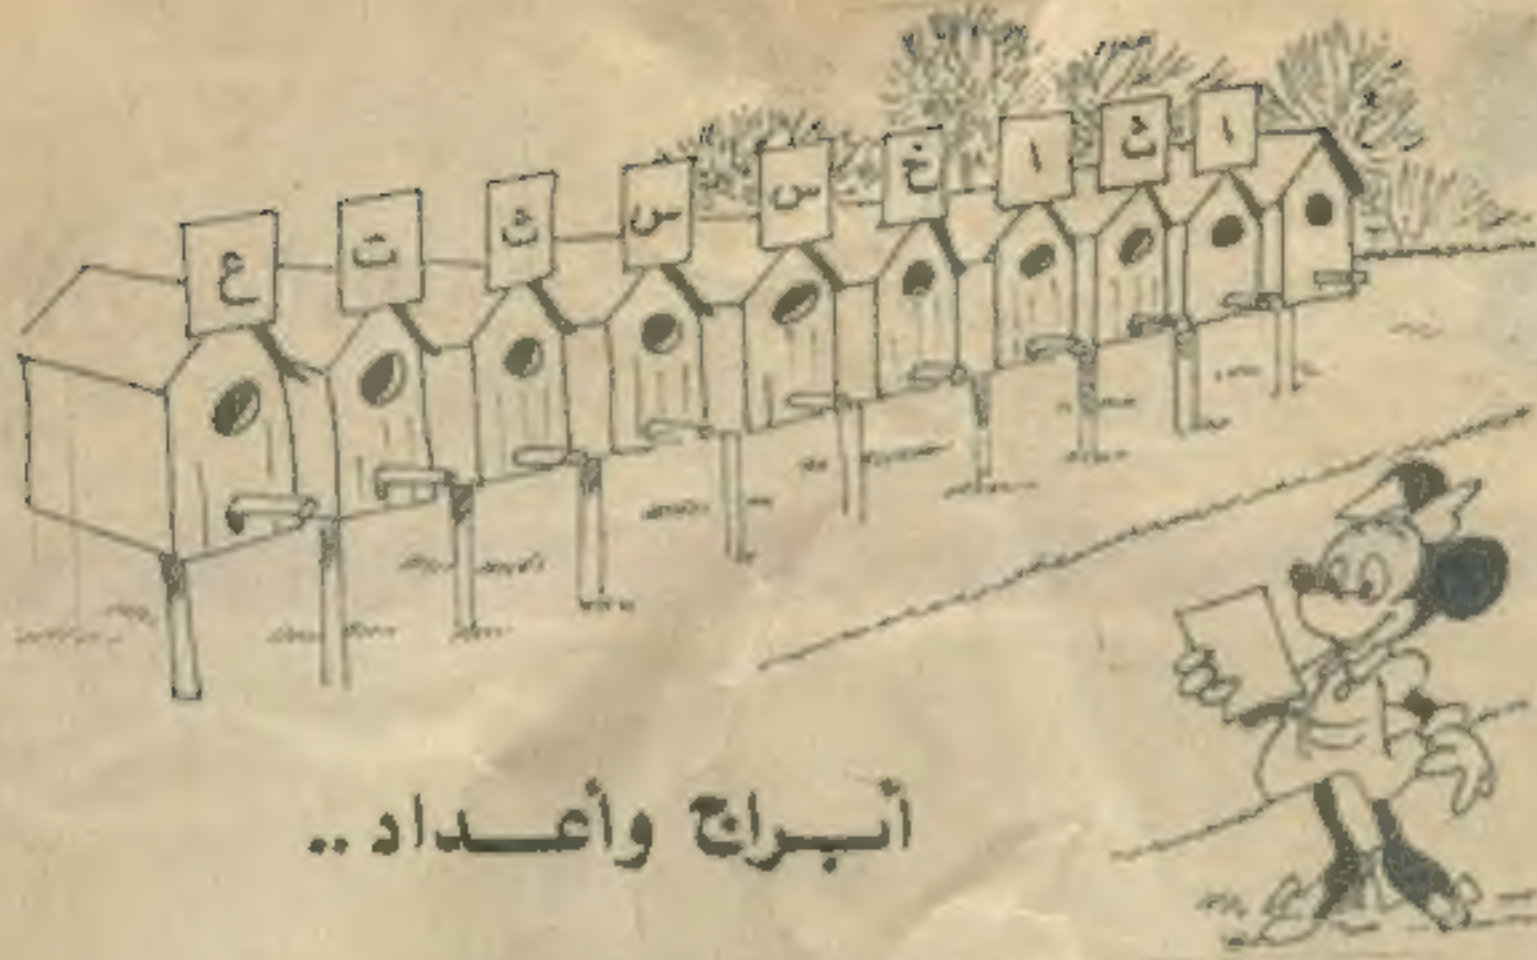 ا ث ا خ س س ث ت ع
أبـراج وأعـداد..